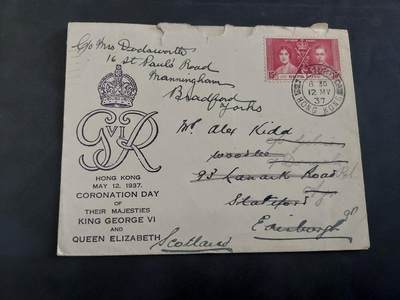 C/o Mrs Dodsworth
16 St Paul's Road
Manningham
Bradford
Yorks
15
8 30
12 MY
37
HONG KONG
GVIR
HONG KONG
MAY 12, 1937.
CORONATION DAY
OF
THEIR MAJESTIES
KING GEORGE VI
AND
QUEEN ELIZABETH
Mr Alex Kidd
93 Lanark Road
Slateford
Edinburgh
Scotland